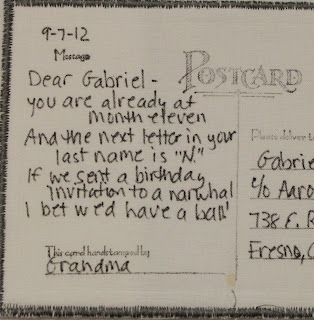 9-7-12
Message
POSTCARD
Dear Gabriel -
you are already at
month eleven
And the next letter in your
last name is "N."
If we sent a birthday
invitation to a narwhal
I bet we'd have a ball!
This card handstamped by
Grandma
Please deliver to
Gabrie
c/o Aaro
738 E. R
Fresno, C